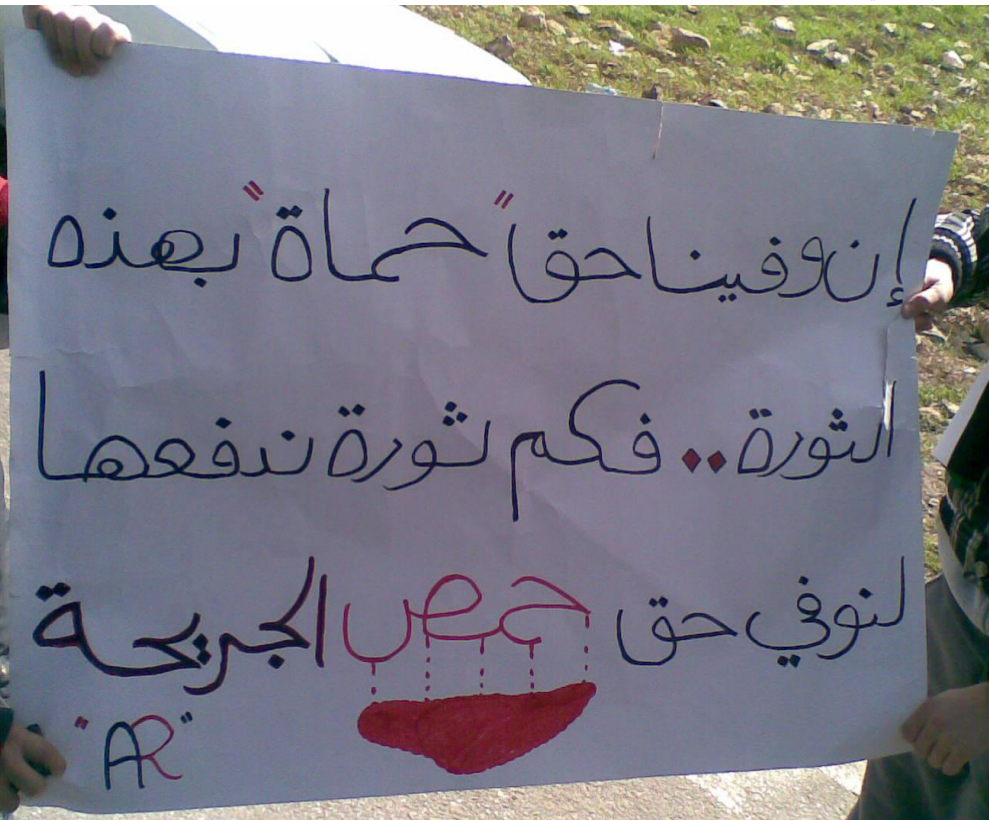 إن وفينا حق "حماة" بهذه
الثورة.. فكم ثورة ندفعها
لنوفي حق حمص الجريحة
"AR"